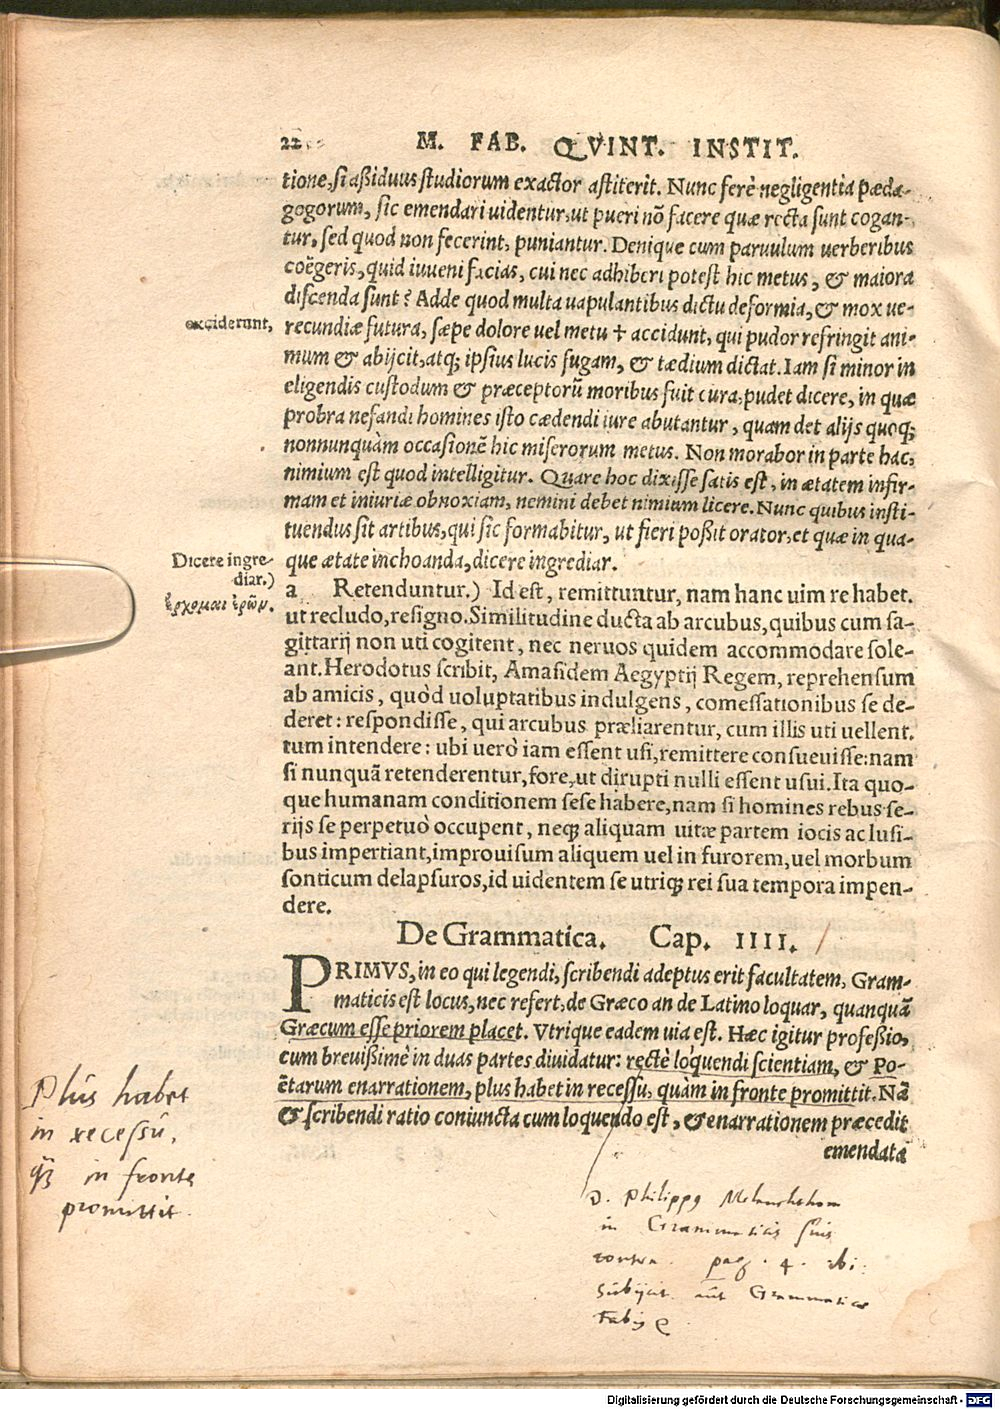 22
M. FAB. QVINT. INSTIT.
tione, si aßiduus studiorum exactor astiterit. Nunc ferè negligentia pæda-
gogorum, sic emendari uidentur, ut pueri nō facere quæ recta sunt cogan-
tur, sed quod non fecerint, puniantur. Denique cum paruulum uerberibus
coëgeris, quid iuueni facias, cui nec adhiberi potest hic metus, & maiora
discenda sunt? Adde quod multa uapulantibus dictu deformia, & mox ue-
exciderunt,
recundiæ futura, sæpe dolore uel metu † accidunt, qui pudor refringit ani-
mum & abijcit, atq; ipsius lucis fugam, & tædium dictat. Iam si minor in
eligendis custodum & præceptorū moribus fuit cura, pudet dicere, in quæ
probra nefandi homines isto cædendi iure abutantur, quam det alijs quoq;
nonnunquàm occasionē hic miserorum metus. Non morabor in parte hac,
nimium est quod intelligitur. Quare hoc dixisse satis est, in ætatem infir-
mam et iniuriæ obnoxiam, nemini debet nimium licere. Nunc quibus insti-
tuendus sit artibus, qui sic formabitur, ut fieri poßit orator, et quæ in qua-
que ætate inchoanda, dicere ingrediar.
Dicere ingre-
diar.)
ἔρχομαι ἐρῶν.
a Retenduntur.) Id est, remittuntur, nam hanc uim re habet.
ut recludo, resigno. Similitudine ducta ab arcubus, quibus cum sa-
gittarij non uti cogitent, nec neruos quidem accommodare sole-
ant. Herodotus scribit, Amasidem Aegyptij Regem, reprehensum
ab amicis, quòd uoluptatibus indulgens, comessationibus se de-
deret: respondisse, qui arcubus præliarentur, cum illis uti uellent.
tum intendere: ubi uerò iam essent usi, remittere consueuisse: nam
si nunquā retenderentur, fore, ut dirupti nulli essent usui. Ita quo-
que humanam conditionem sese habere, nam si homines rebus se-
rijs se perpetuò occupent, neq; aliquam uitæ partem iocis ac lusi-
bus impertiant, improuisum aliquem uel in furorem, uel morbum
sonticum delapsuros, id uidentem se utriq; rei sua tempora impen-
dere.
De Grammatica. Cap. IIII.
PRIMVS, in eo qui legendi, scribendi adeptus erit facultatem, Gram-
maticis est locus, nec refert, de Græco an de Latino loquar, quanquā
Græcum esse priorem placet. Vtrique eadem uia est. Hæc igitur profeßio,
cum breuißimè in duas partes diuidatur: rectè loquendi scientiam, & Po-
ētarum enarrationem, plus habet in recessu, quàm in fronte promittit. Nā
& scribendi ratio coniuncta cum loquendo est, & enarrationem præcedit
emendata
Plus habet
in recessu,
q̄ in fronte
promittit.
D. Philippꝯ Melanchthon
in Grammaticis suis
contra pag. 4. ubi
subijcit Grammaticæ
Fabij
Digitalisierung gefördert durch die Deutsche Forschungsgemeinschaft - DFG